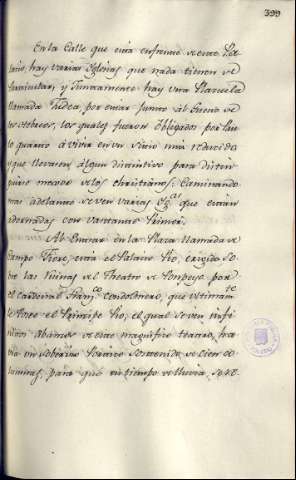 399
En la Calle que está enfrente de este Pa-
lacio, hay varias Iglesias que nada tienen de
familiar, y Juntamente hay una Plazuela
llamada Judea por estar junto al Gueto de
los Hebreos, los quales fueron obligados por Pau-
lo quarto á vivir en un sitio mui reducido
y que llevasen algun distintivo para distin-
guirse mejor de los christianos: Caminando
mas adelante se ven varias Ygᵃˢ que estan
adornadas con bastante Primor.
Al Entrar en la Plaza llamada de
Campo Fiore, está el Palacio Pio, erigido so-
bre las Ruinas de el Theatro de Pompeyo por
el Cardenal Franᶜᵒ Condolmero, que ultimamᵗᵉ
le Posee el Principe Pio, el qual se ven infe-
riores abamos de este magnifico teatro, ha-
via un soberano Portico sostenido de cien co-
lumnas, para que en tiempo de lluvia, se re-